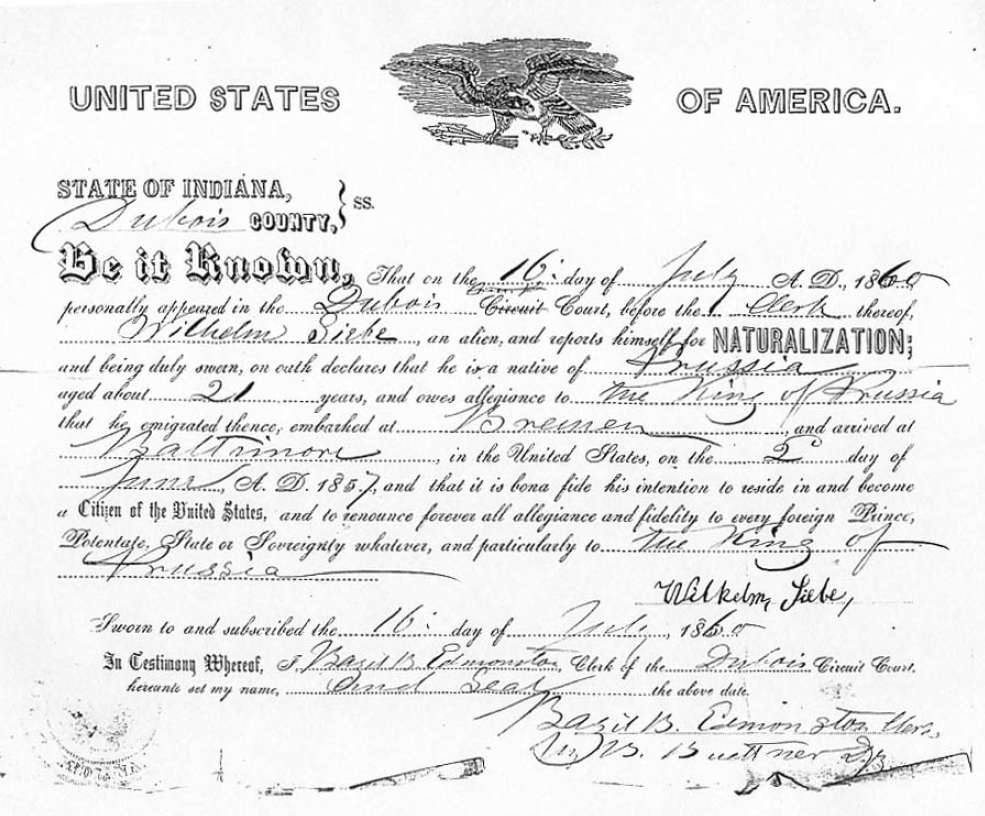 UNITED STATES OF AMERICA.
STATE OF INDIANA,
Dubois COUNTY, } SS.
Be it Known, That on the 16: day of July A. D., 1860
personally appeared in the Dubois Circuit Court, before the Clerk thereof,
Wilhelm Siebe, an alien, and reports himself for NATURALIZATION;
and being duly sworn, on oath declares that he is a native of Prussia
aged about 21 years, and owes allegiance to the King of Prussia
that he emigrated thence, embarked at Bremen, and arrived at
Baltimore, in the United States, on the 2d day of
June, A. D. 1857, and that it is bona fide his intention to reside in and become
a Citizen of the United States, and to renounce forever all allegiance and fidelity to every foreign Prince,
Potentate, State or Sovreignty whatever, and particularly to the King of
Prussia
Wilhelm Siebe,
Sworn to and subscribed the 16: day of July, 1860
In Testimony Whereof, I, Bazil B. Edmonston, Clerk of the Dubois Circuit Court,
hereunto set my name, and Seal the above date.
Bazil B. Edmonston Clerk
B. Buettner